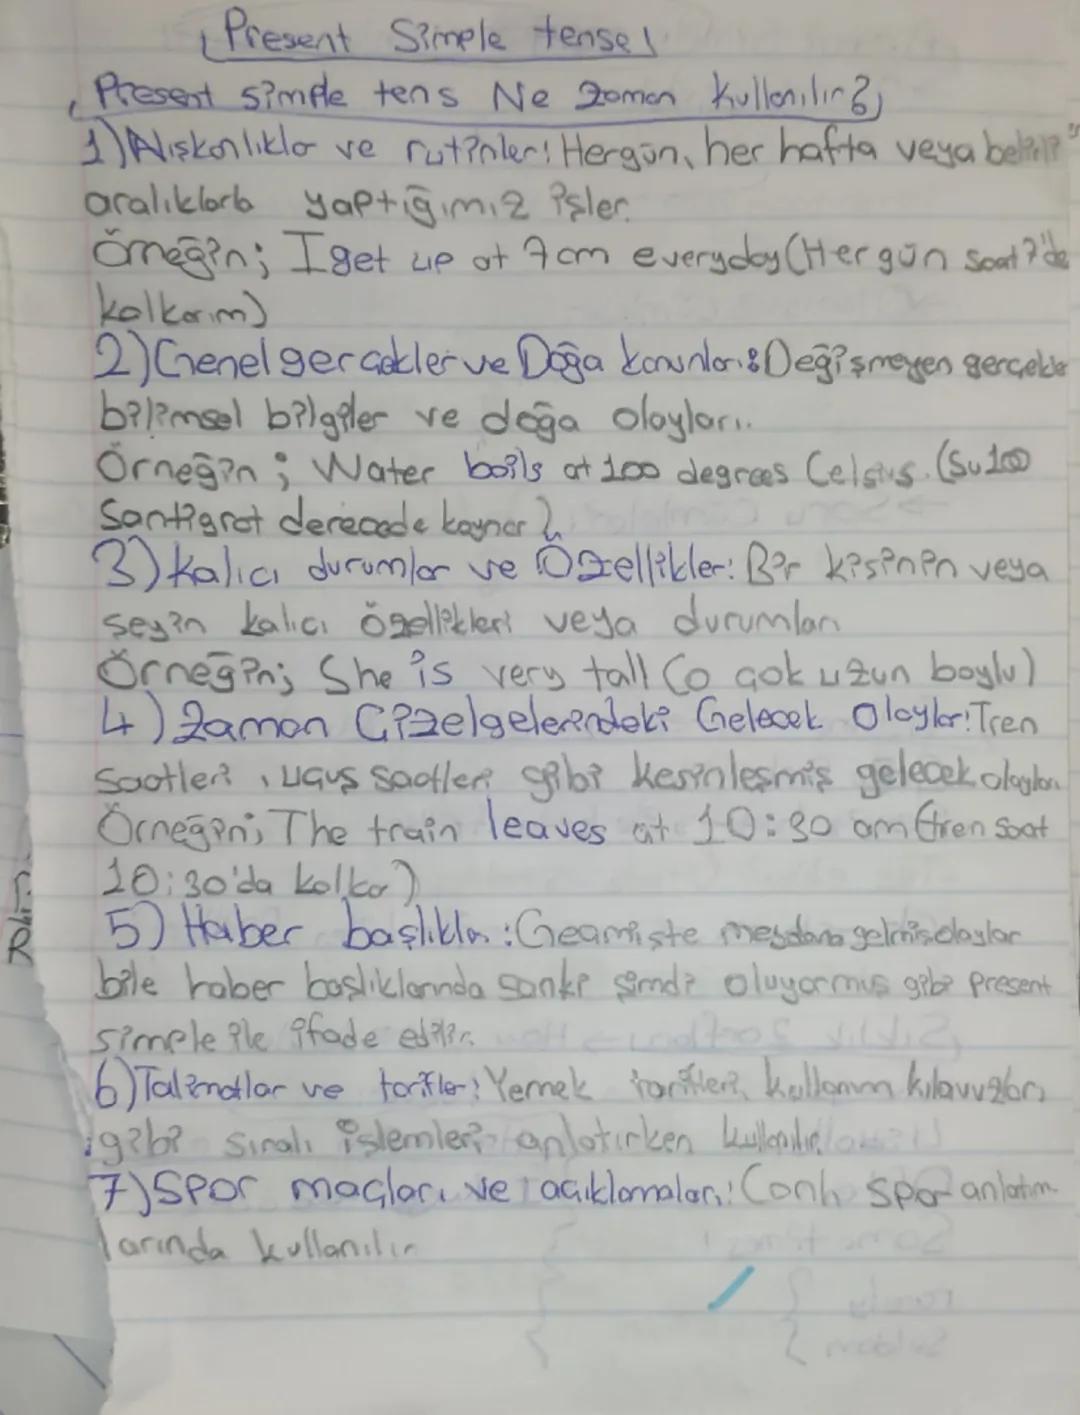 Present Simple tense
Present simple tens Ne Zaman Kullanılır?
1) Alışkanlıkla ve rutinler: Hergün, her hafta veya belirli
aralıklarla yaptığımız işler.
Örneğin; I get up at 7am everyday (Her gün saat 7'de
kalkarım)
2) Genel gerçekler ve Doğa kanunları: Değişmeyen gerçekler
bilimsel bilgiler ve doğa olayları..
Örneğin; Water boils at 100 degrees Celsius. (Su 100
Santigrat derecede kaynar).
3) Kalıcı durumlar ve Özellikler: Bir kişinin veya
şeyin kalıcı özellikleri veya durumları
Örneğin; She is very tall (o çok uzun boylu)
4) Zaman Çizelgelerindeki Gelecek Olaylar: Tren
saatleri, uçuş saatleri gibi kesinleşmiş gelecek olayları
Örneğin; The train leaves at 10:30 am (tren saat
10:30'da kalkar)
5) Haber başlıkla: Geçmişte meydana gelmiş olaylar
bile haber başlıklarında sanki şimdi oluyormuş gibi present
simple ile ifade edilir.
6) Talimatlar ve tarifler: Yemek tarifleri, kullanım kılavuzları
gibi sıralı işlemleri anlatırken kullanılır.
7) Spor maçları ve açıklamaları: Canlı spor anlatım
larında kullanılır